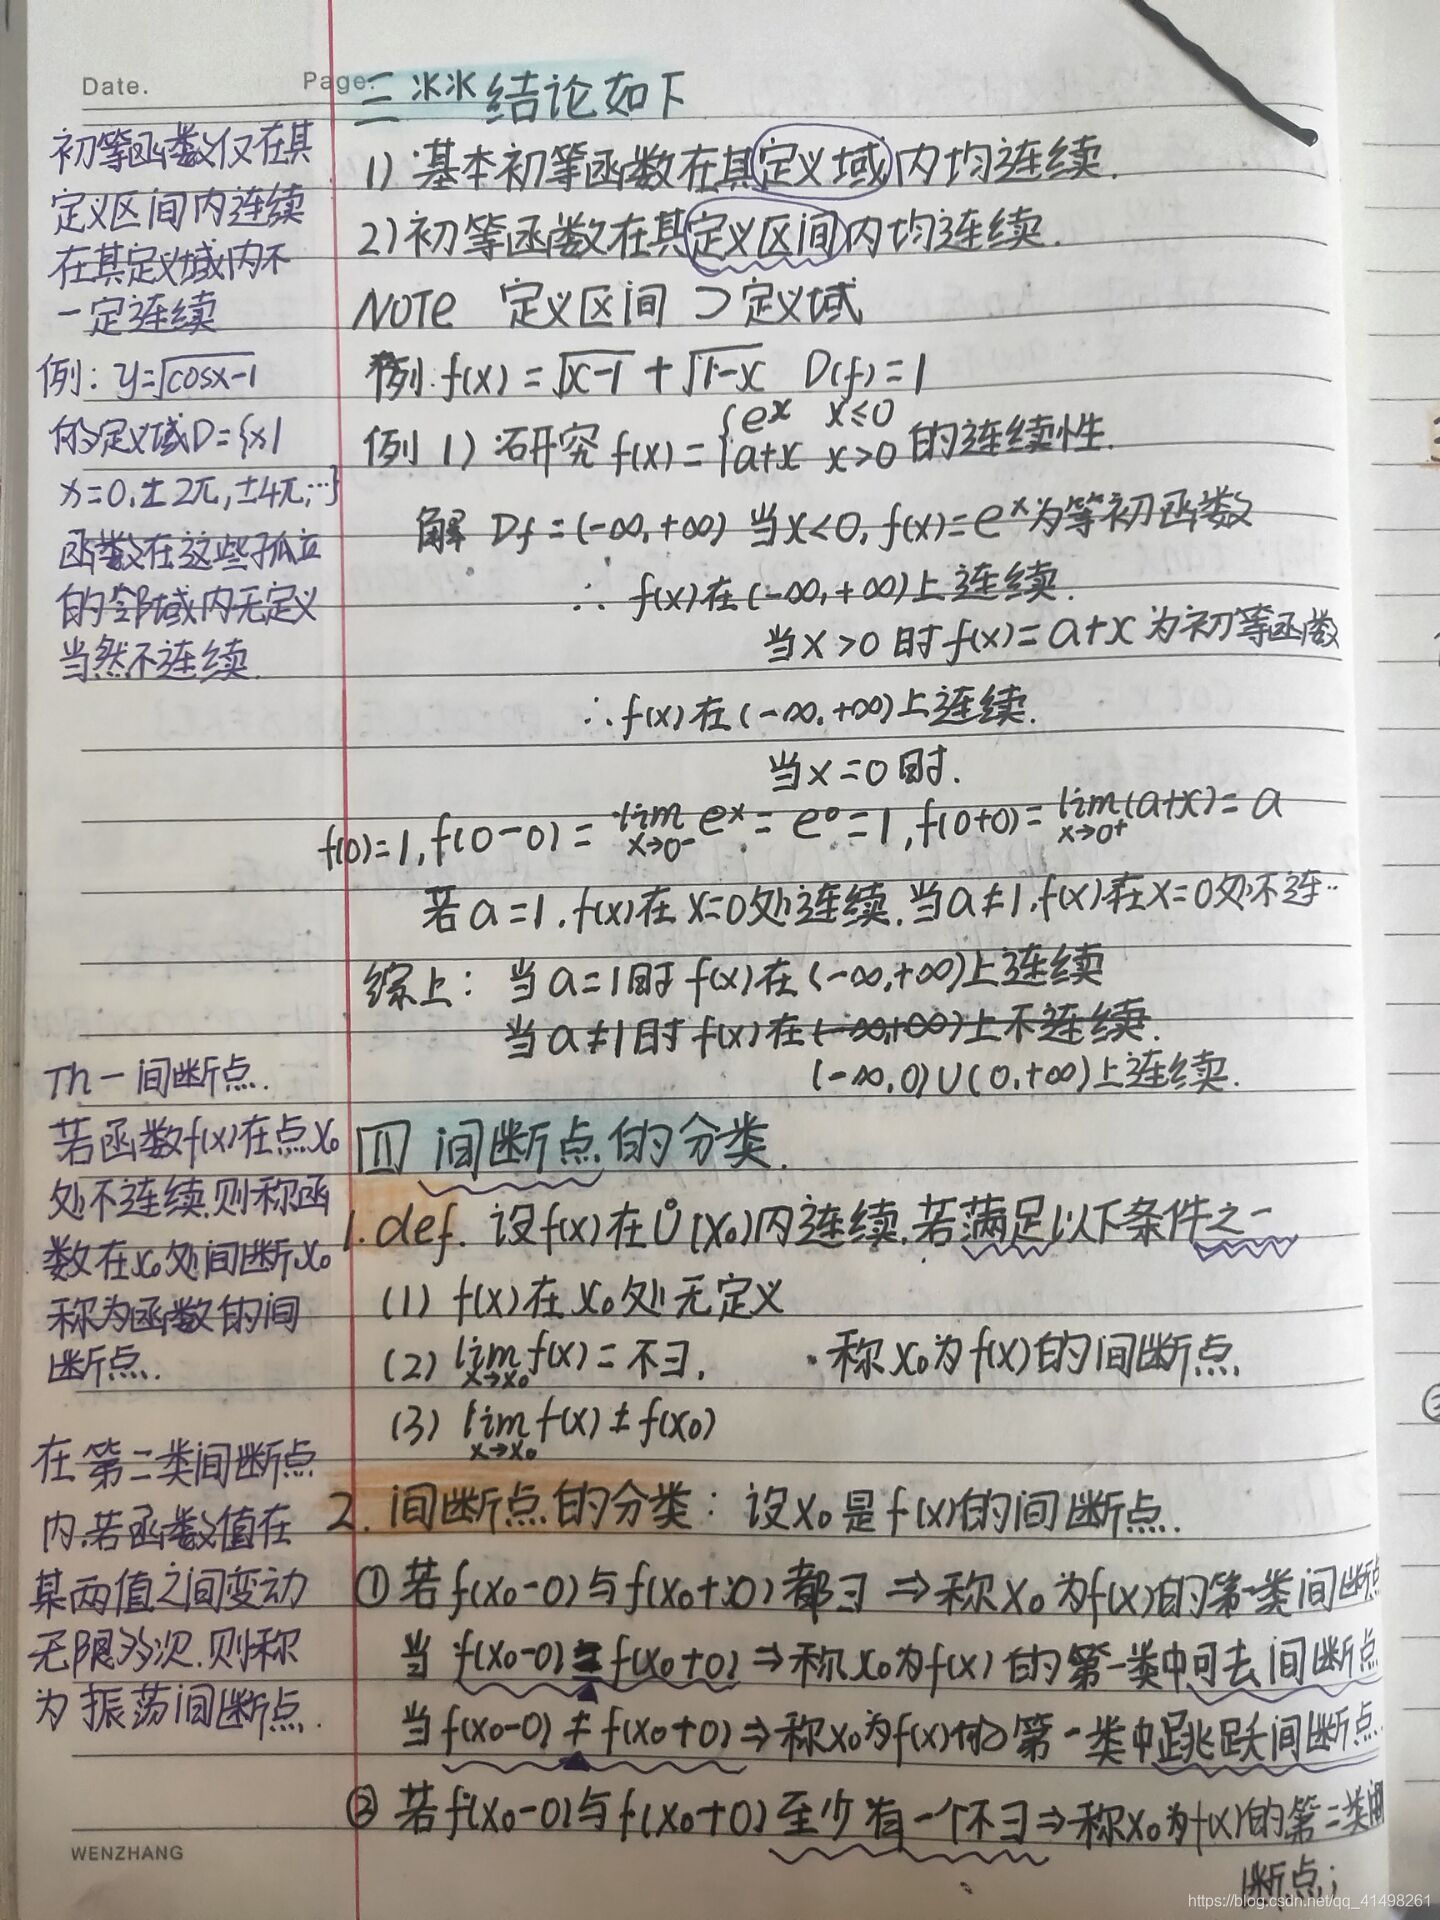 Date.
Page.
三 ※※ 结论如下
1) 基本初等函数在其定义域内均连续.
2) 初等函数在其定义区间内均连续.
NOTE 定义区间 ⊃ 定义域
例: f(x) = √x-1 + √1-x D(f) = 1
例 1) 研究 f(x) = { e^x x≤0
a+x x>0 的连续性.
解 Df = (-∞, +∞) 当x<0, f(x) = e^x 为等初函数
∴ f(x) 在 (-∞, +∞) 上连续.
当 x>0 时 f(x) = a+x 为初等函数
∴ f(x) 在 (-∞, +∞) 上连续.
当 x=0 时.
f(0)=1, f(0-0) = lim x→0⁻ e^x = e^0 = 1, f(0+0) = lim x→0⁺ (a+x) = a
若 a=1, f(x) 在 x=0 处连续. 当 a≠1, f(x) 在 x=0 处不连··
综上: 当 a=1 时 f(x) 在 (-∞, +∞) 上连续
当 a≠1 时 f(x) 在 (-∞,+∞) 上不连续.
(-∞, 0) ∪ (0, +∞) 上连续.
四 间断点的分类.
1. def. 设 f(x) 在 Ů(x₀) 内连续, 若满足以下条件之一
(1) f(x) 在 x₀ 处无定义
(2) lim x→x₀ f(x) = 不∃. ·称 x₀ 为 f(x) 的间断点.
(3) lim x→x₀ f(x) ≠ f(x₀)
2. 间断点的分类: 设 x₀ 是 f(x) 的间断点.
① 若 f(x₀-0) 与 f(x₀+0) 都∃ ⇒ 称 x₀ 为 f(x) 的第一类间断点
当 f(x₀-0) = f(x₀+0) ⇒ 称 x₀ 为 f(x) 的第一类中可去间断点
当 f(x₀-0) ≠ f(x₀+0) ⇒ 称 x₀ 为 f(x) 的第一类中跳跃间断点.
② 若 f(x₀-0) 与 f(x₀+0) 至少有一个不∃ ⇒ 称 x₀ 为 f(x) 的第二类间
断点;
初等函数仅在其
定义区间内连续
在其定义域内不
一定连续
例: y=√cosx-1
的定义域D={x|
x=0, ±2π, ±4π, …}
函数在这些孤立
的邻域内无定义
当然不连续.
Th一 间断点.
若函数f(x)在点x₀
处不连续.则称函
数在x₀处间断,x₀
称为函数的间
断点.
在第二类间断点
内.若函数值在
某两值之间变动
无限多次.则称
为振荡间断点.
WENZHANG
https://blog.csdn.net/qq_41498261